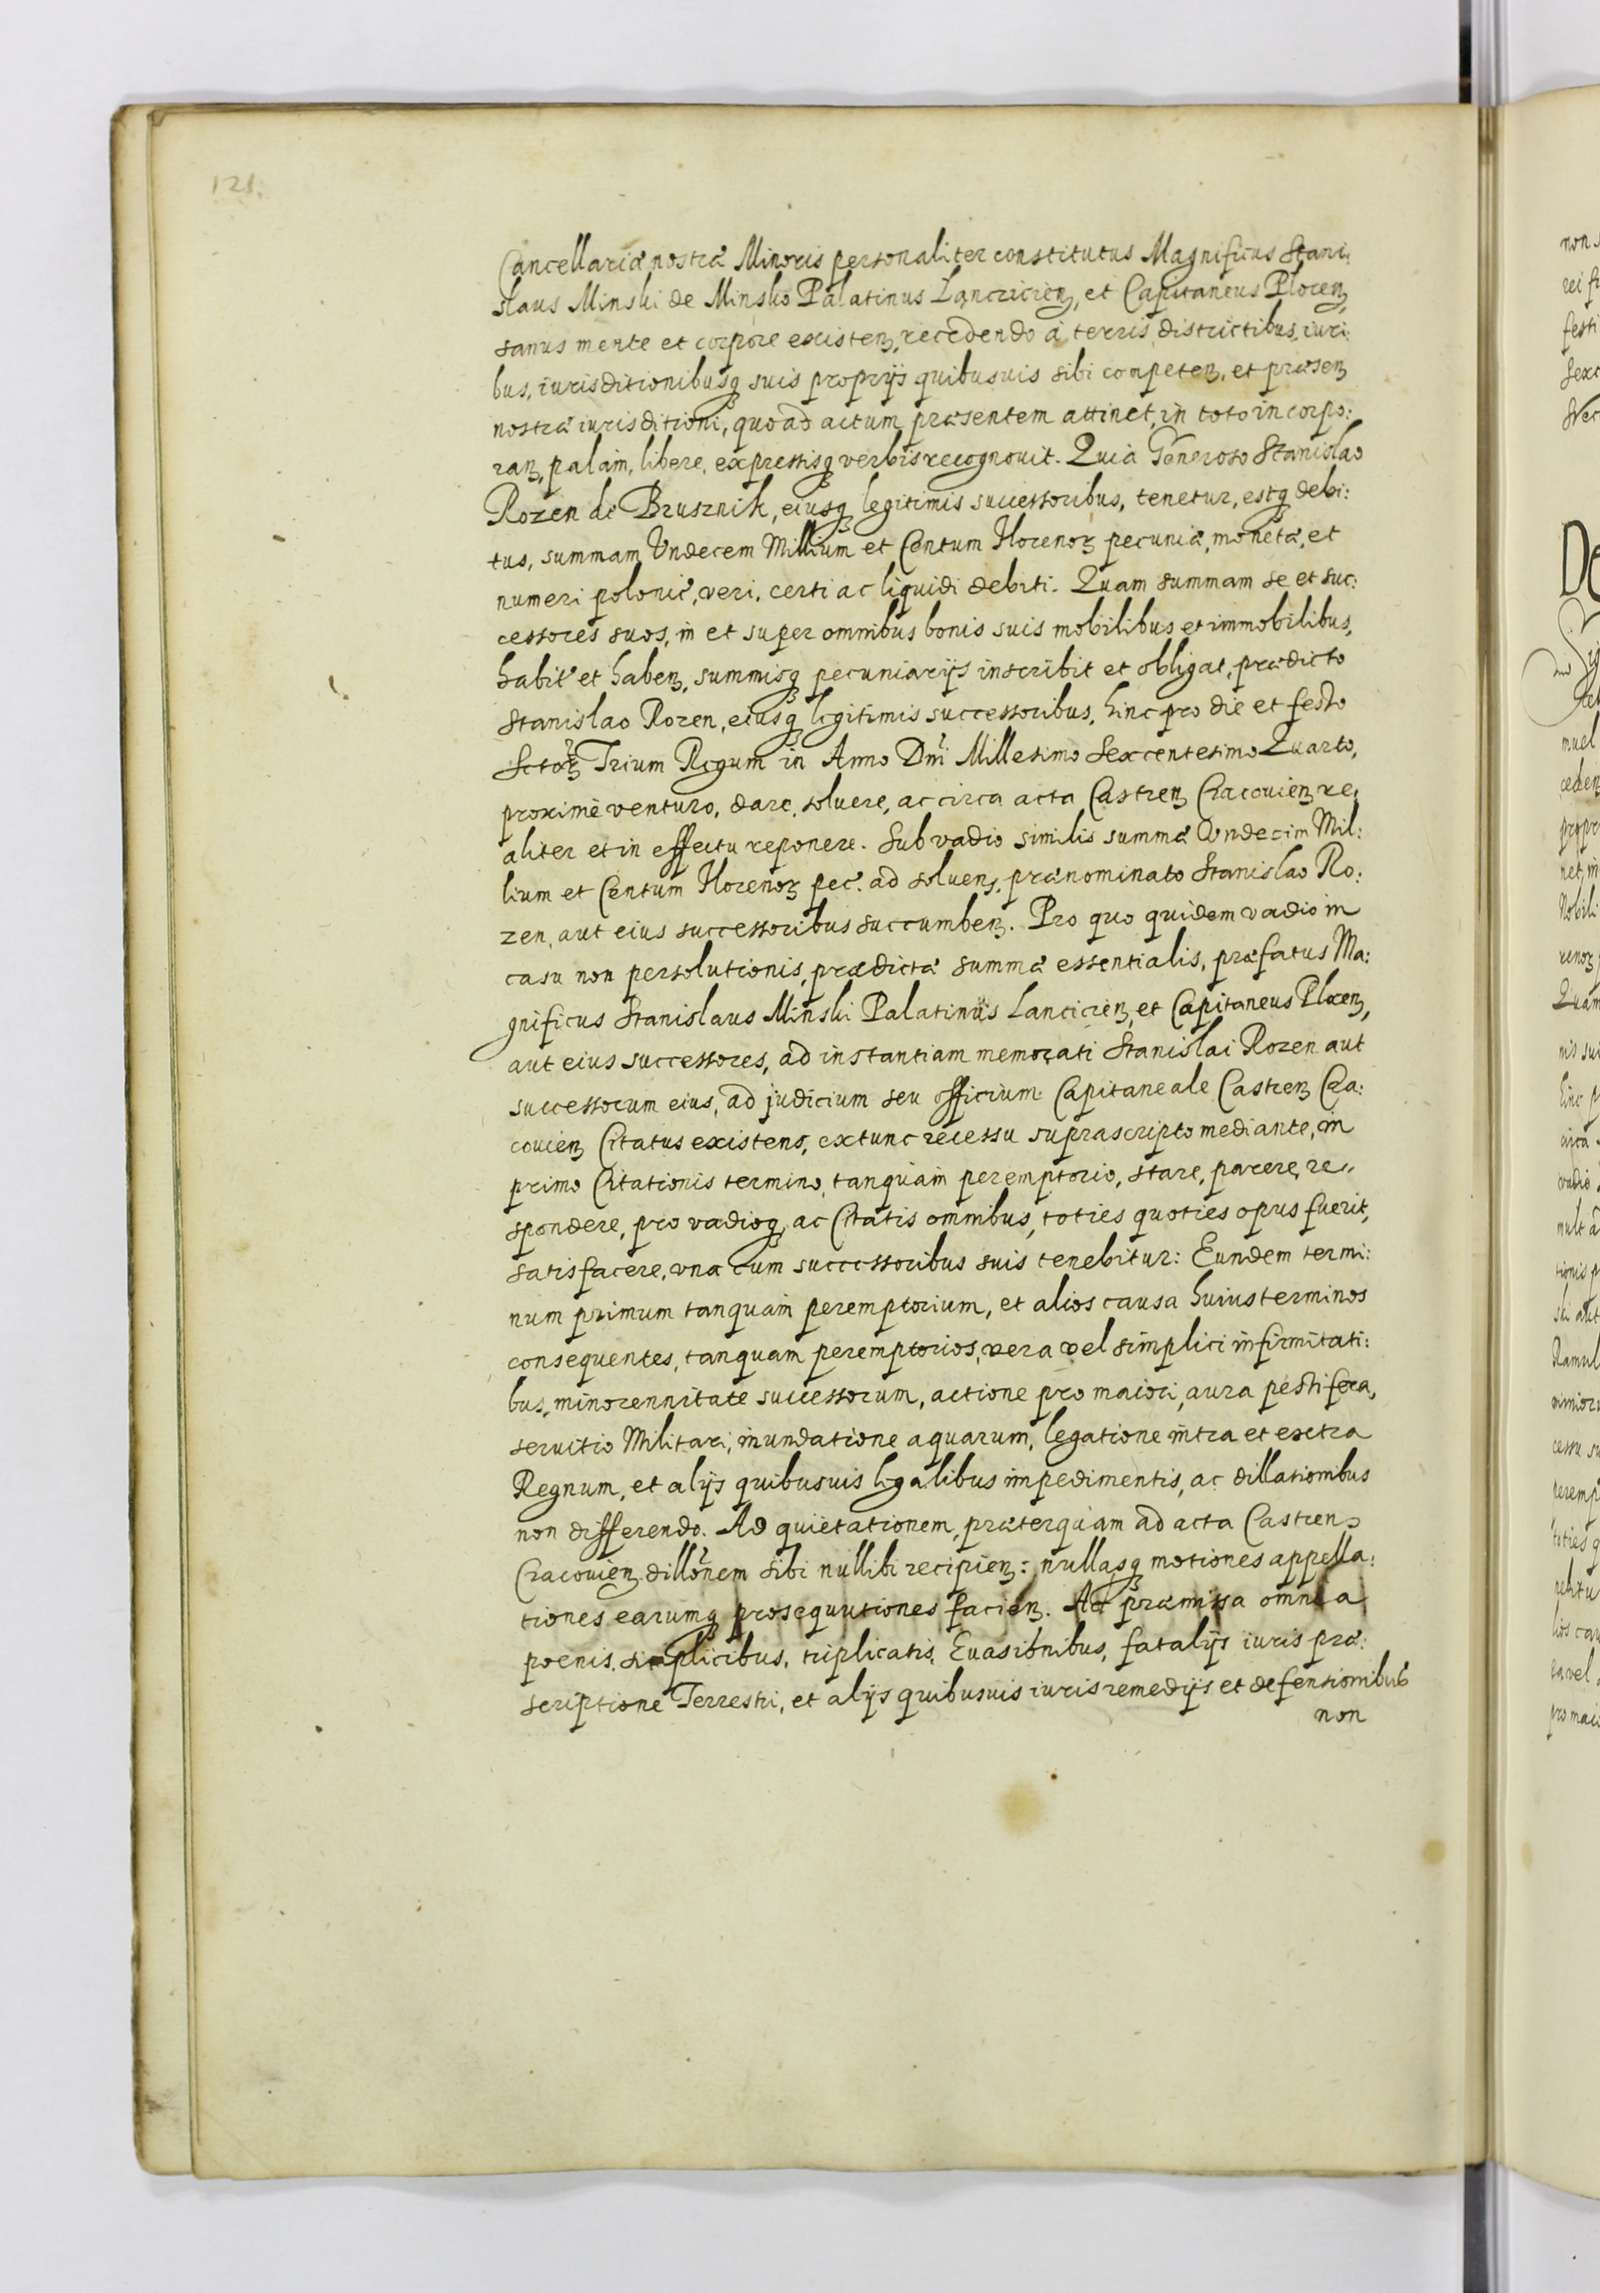 121.
Cancellariæ nostræ Minoris personaliter constitutus Magnificus Stani:
slaus Minski de Minsko Palatinus Lancicien, et Capitaneus Plocen,
sanus mente et corpore existen, recedendo à terris districtibus, iuri
bus, iurisditionibusq suis proprijs quibusuis sibi competen, et præsen
nostræ iurisditioni, quoad actum præsentem attinet, in toto incorpo:
ran, palàm, libere, expressisq verbis recognouit. Quià Generoso Stanislao
Rozen de Brusznik, eiusq legitimis successoribus, tenetur, estq debi:
tus, summam Vndecem Millium et Centum Florenoꝝ pecuniæ, monetæ, et
numeri polonic, veri, certi ac liquidi debiti. Quam summam se et suc:
cessores suos, in et super omnibus bonis suis mobilibus et immobilibus,
habit et haben, summisq pecuniarijs inscribit et obligat, prædicto
Stanislao Rozen, eiusq legitimis successoribus, hinc pro die et festo
Sctoꝝ Trium Regum in Anno Dni Millesimo Sexcentesimo Quarto,
proximè venturo, dare, soluere, ac circa acta Castren Cracouien re,
aliter et in effectu reponere. Sub vadio similis summæ Vndecim Mil:
lium et Centum Florenoꝝ pec: ad soluen, prænominato Stanislao Ro:
zen, aut eius successoribus succumben. Pro quo quidem vadio in
casu non persolutionis, prædictæ summæ essentialis, præfatus Ma:
gnificus Stanislaus Minski Palatinus Lancicien, et Capitaneus Plocen,
aut eius successores, ad instantiam memorati Stanislai Rozen aut
successorum eius, ad judicium seu officium Capitaneale Castren Cra:
couien Citatus existens, extunc recessu suprascripto mediante, in
primo Citationis termino, tanquàm peremptorio, stare, parere, re,
spondere, pro vadioq, ac Citatis omnibus, toties quoties opus fuerit,
satisfacere, vna cum successoribus suis tenebitur: Eundem termi:
num primum tanquàm peremptorium, et alios causæ huius terminos
consequentes, tanquam peremptorios, vera vel simplici infirmitati:
bus, minorennitate successorum, actione pro maiori, aura pestifera,
seruitio Militari, inundatione aquarum, legatione intra et extra
Regnum, et alijs quibusuis legalibus impedimentis, ac dillationibus
non differendo. Ad quietationem, præterquàm ad acta Castren
Cracouien dillõnem sibi nullibi recipien: nullasq motiones appella:
tiones earumq prosequutiones facien. Ac præmissa omnia
poenis, simplicibus, triplicatis, Euasionibus, fatalijs iuris præ:
scriptione Terrestri, et alijs quibusuis iuris remedijs et defensionibus
non